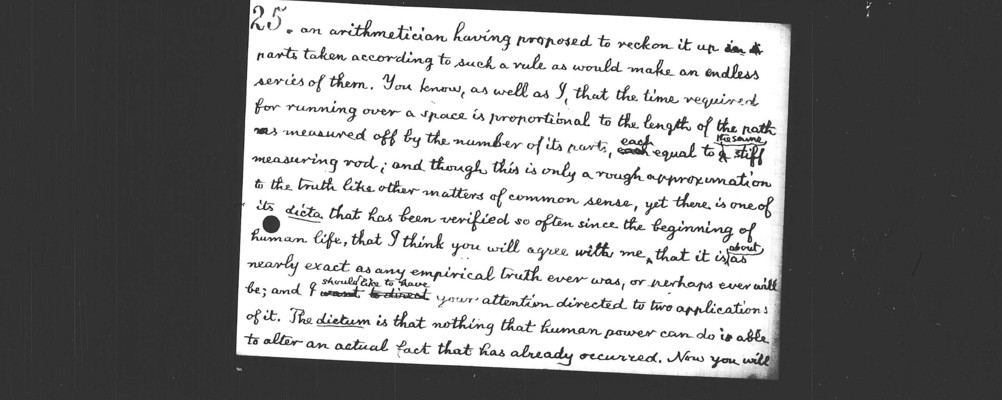 25. an arithmetician having proposed to reckon it up
parts taken according to such a rule as would make an endless
series of them. You know, as well as I, that the time required
for running over a space is proportional to the length of the path
as measured off by the number of its parts, each equal to the same stiff
measuring rod; and though this is only a rough approximation
to the truth like other matters of common sense, yet there is one of
its dicta that has been verified so often since the beginning of
human life, that I think you will agree with me, that it is about as
nearly exact as any empirical truth ever was, or perhaps ever will
be; and I should like to have your attention directed to two applications
of it. The dictum is that nothing that human power can do is able
to alter an actual fact that has already occurred. Now you will